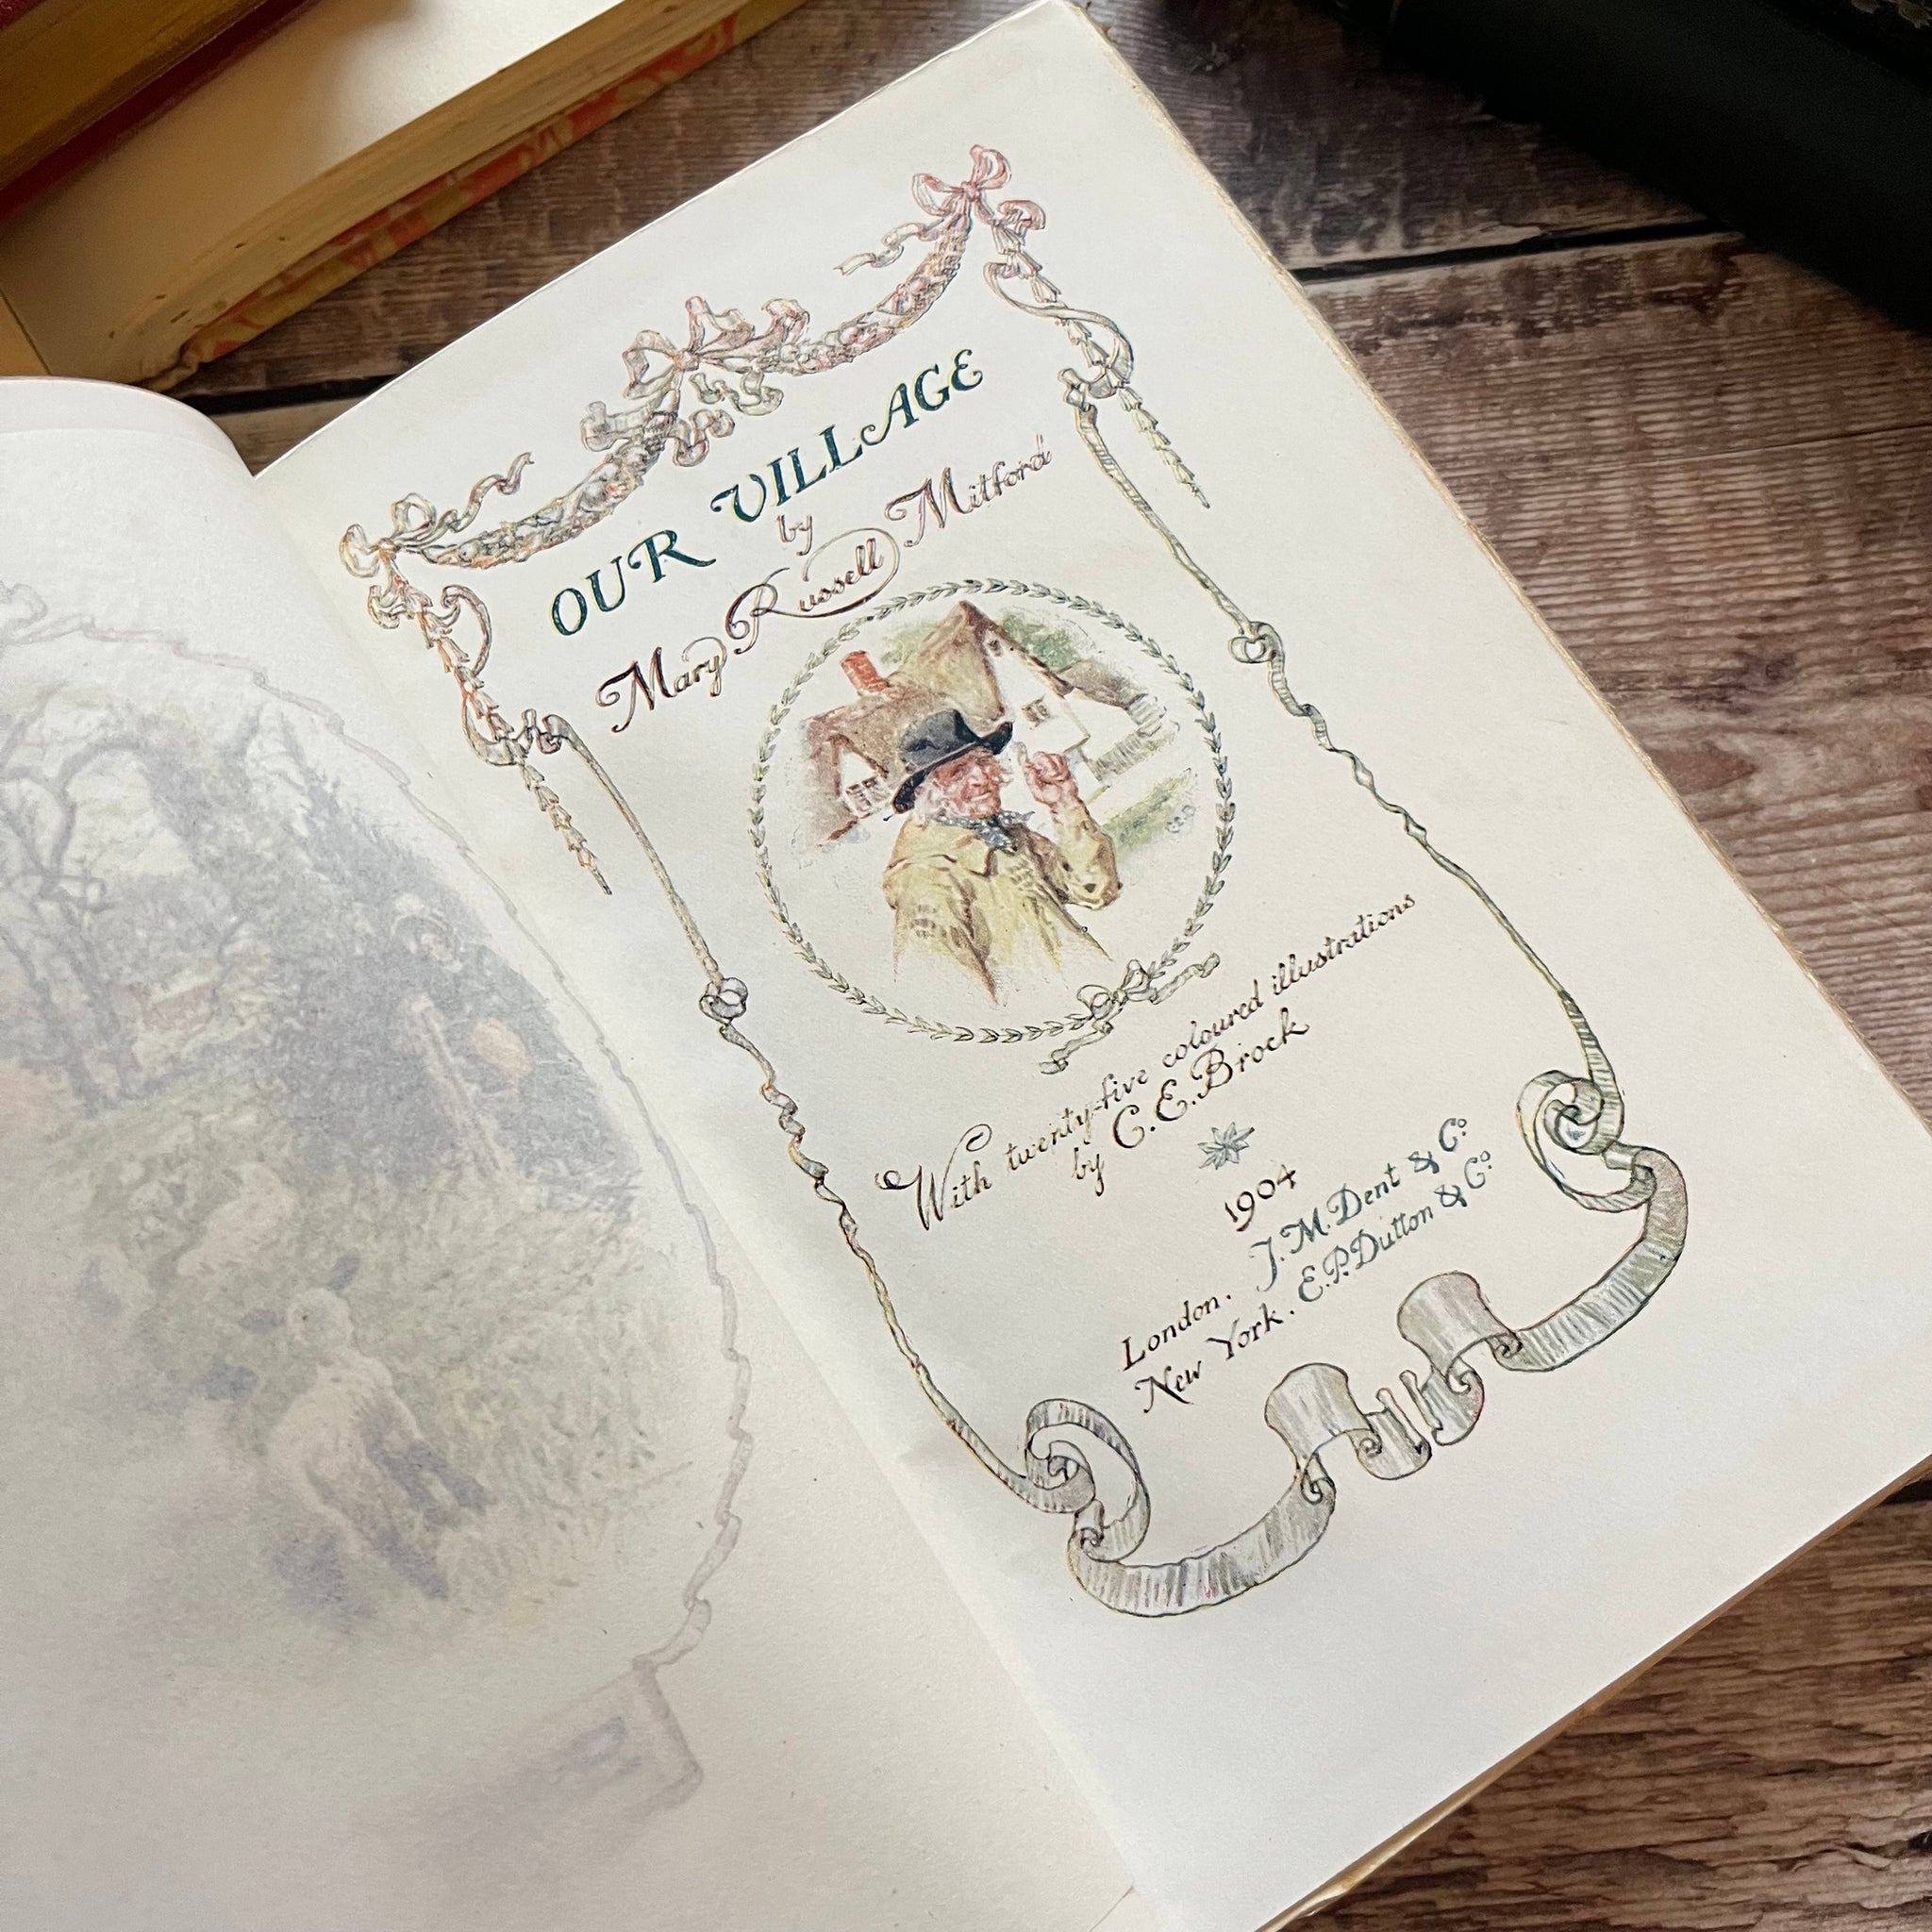 OUR VILLAGE
by
Mary Russell Mitford
With twenty-five coloured illustrations
by C.E.Brock
1904
London. J.M.Dent & Cº
New York. E.P.Dutton & Cº